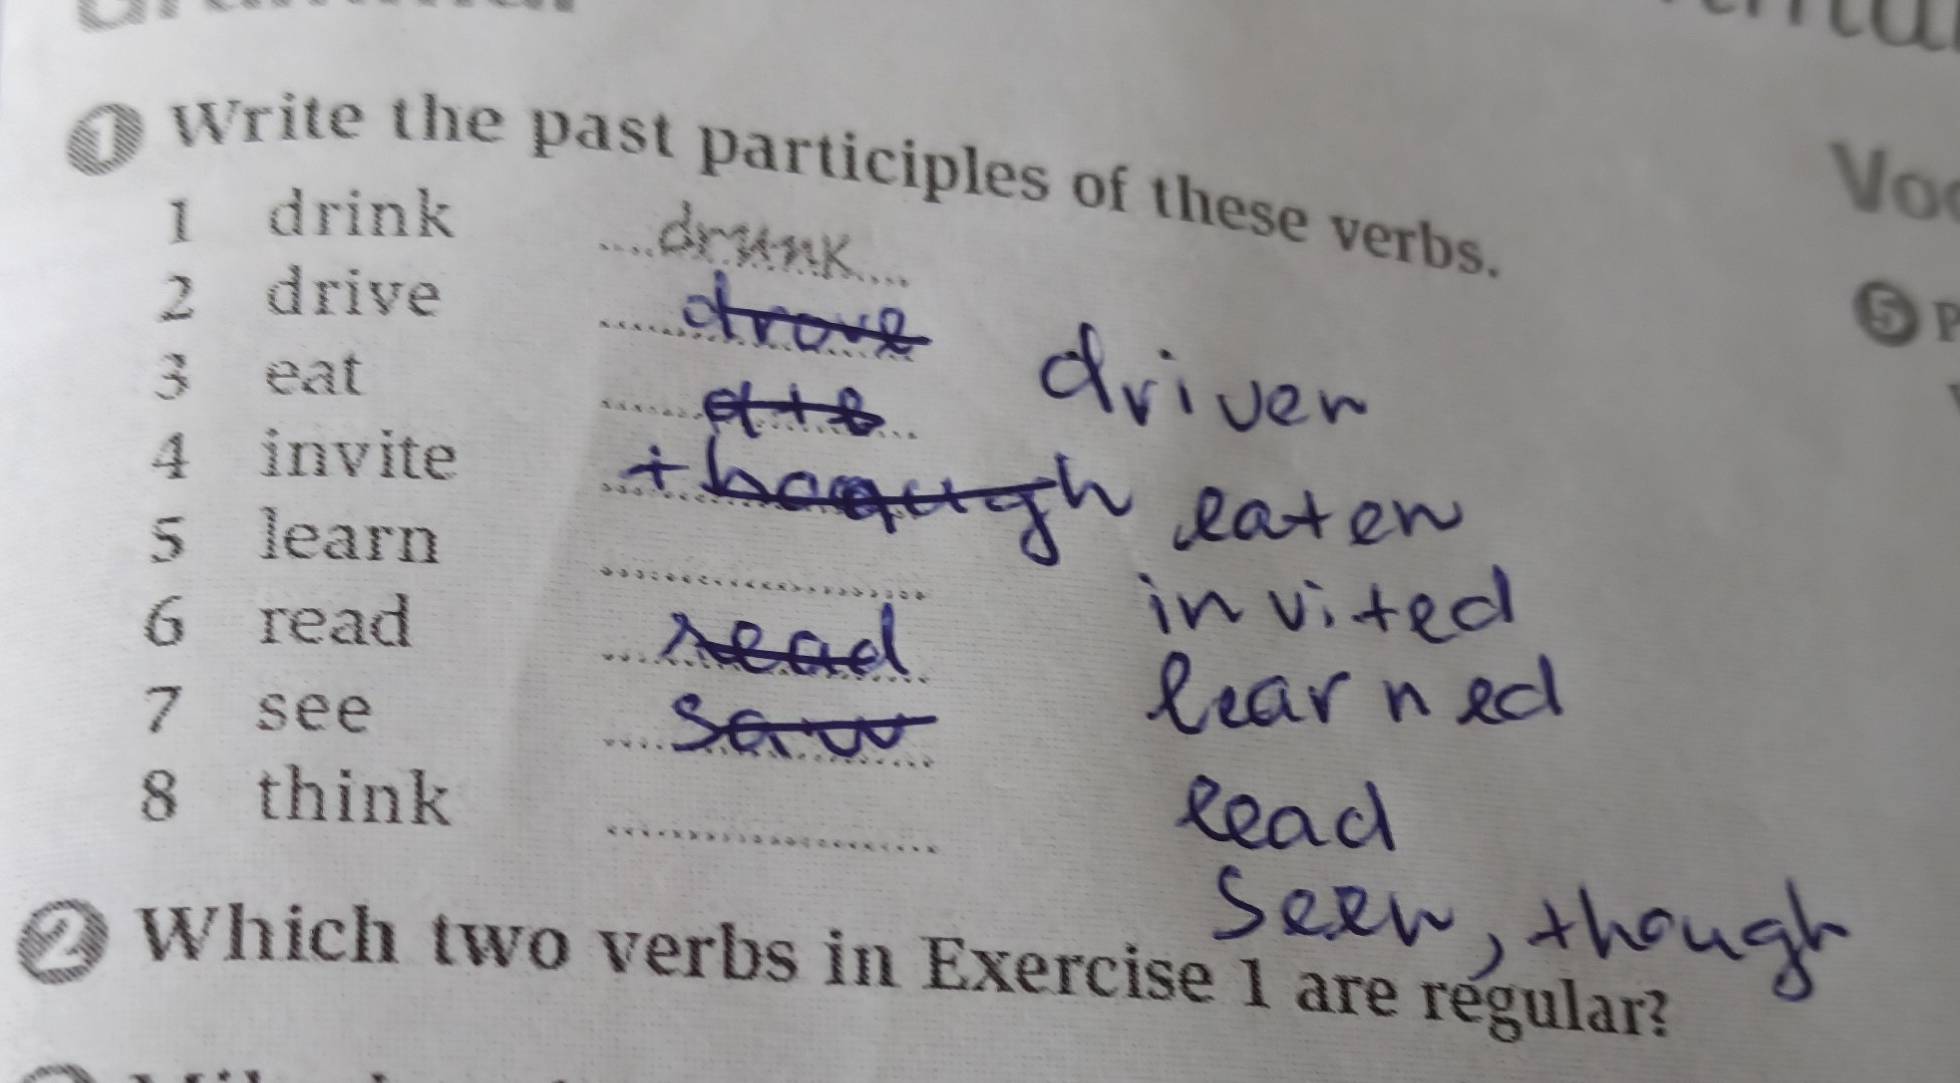 1 Write the past participles of these verbs.
1 drink ....drunk....
2 drive drove driven
3 eat ate eaten
4 invite though invited
5 learn learned
6 read read read
7 see saw seen, though
8 think
2 Which two verbs in Exercise 1 are regular?
Vo
5